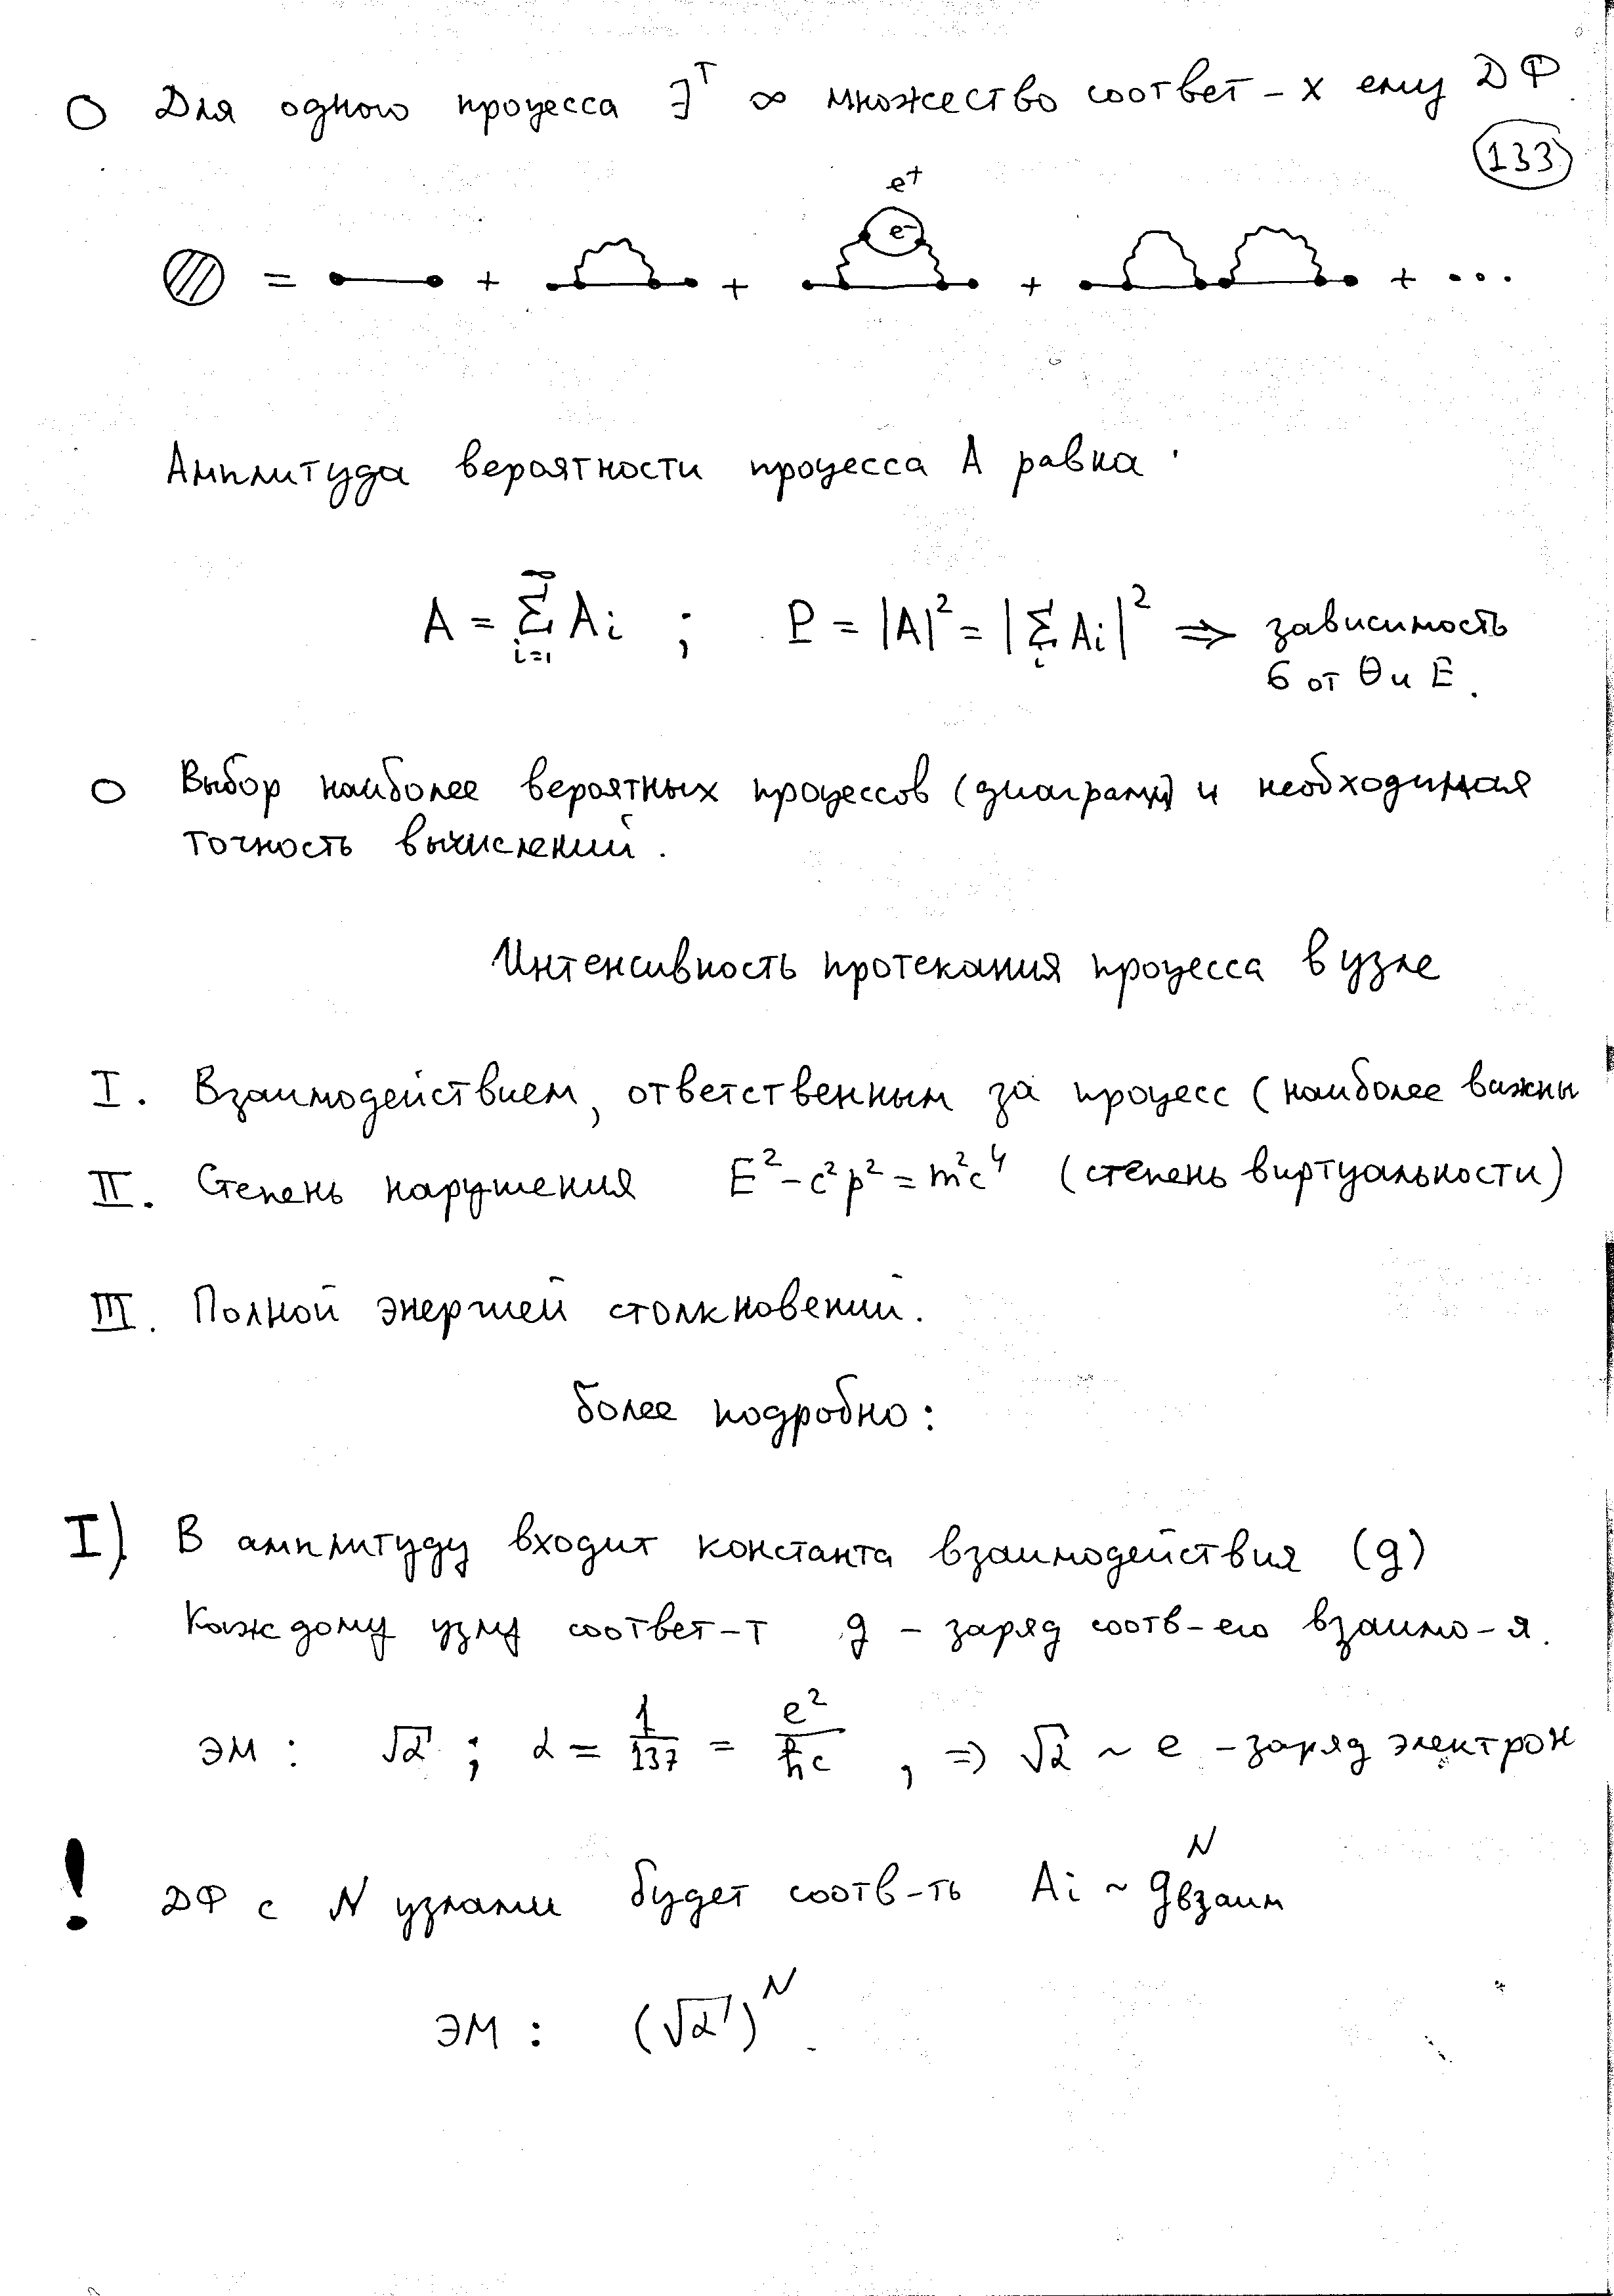 О Для одного процесса ∃ᵀ ∞ множество соответ-х ему ДФ.
133
e⁺
e⁻
= + + + + ...
Амплитуда вероятности процесса A равна:
A = ∑_{i=1}^{∞} Ai ; P = |A|² = |∑_i Ai|² ⇒ зависимость
σ от θ и E.
О Выбор наиболее вероятных процессов (диаграмм) и необходимая
точность вычислений.
Интенсивность протекания процесса в узле
I. Взаимодействием, ответственным за процесс (наиболее важны
II. Степень нарушения E² - c²p² = m²c⁴ (степень виртуальности)
III. Полной энергией столкновений.
более подробно:
I) В амплитуду входит константа взаимодействия (g)
Каждому узлу соответ-т g - заряд соотв-его взаимо-я.
ЭМ: √α ; α = 1/137 = e²/ħc , ⇒ √α ~ e - заряд электрон
! ДФ с N узлами будет соотв-ть Ai ~ g_взаим^N
ЭМ: (√α)^N